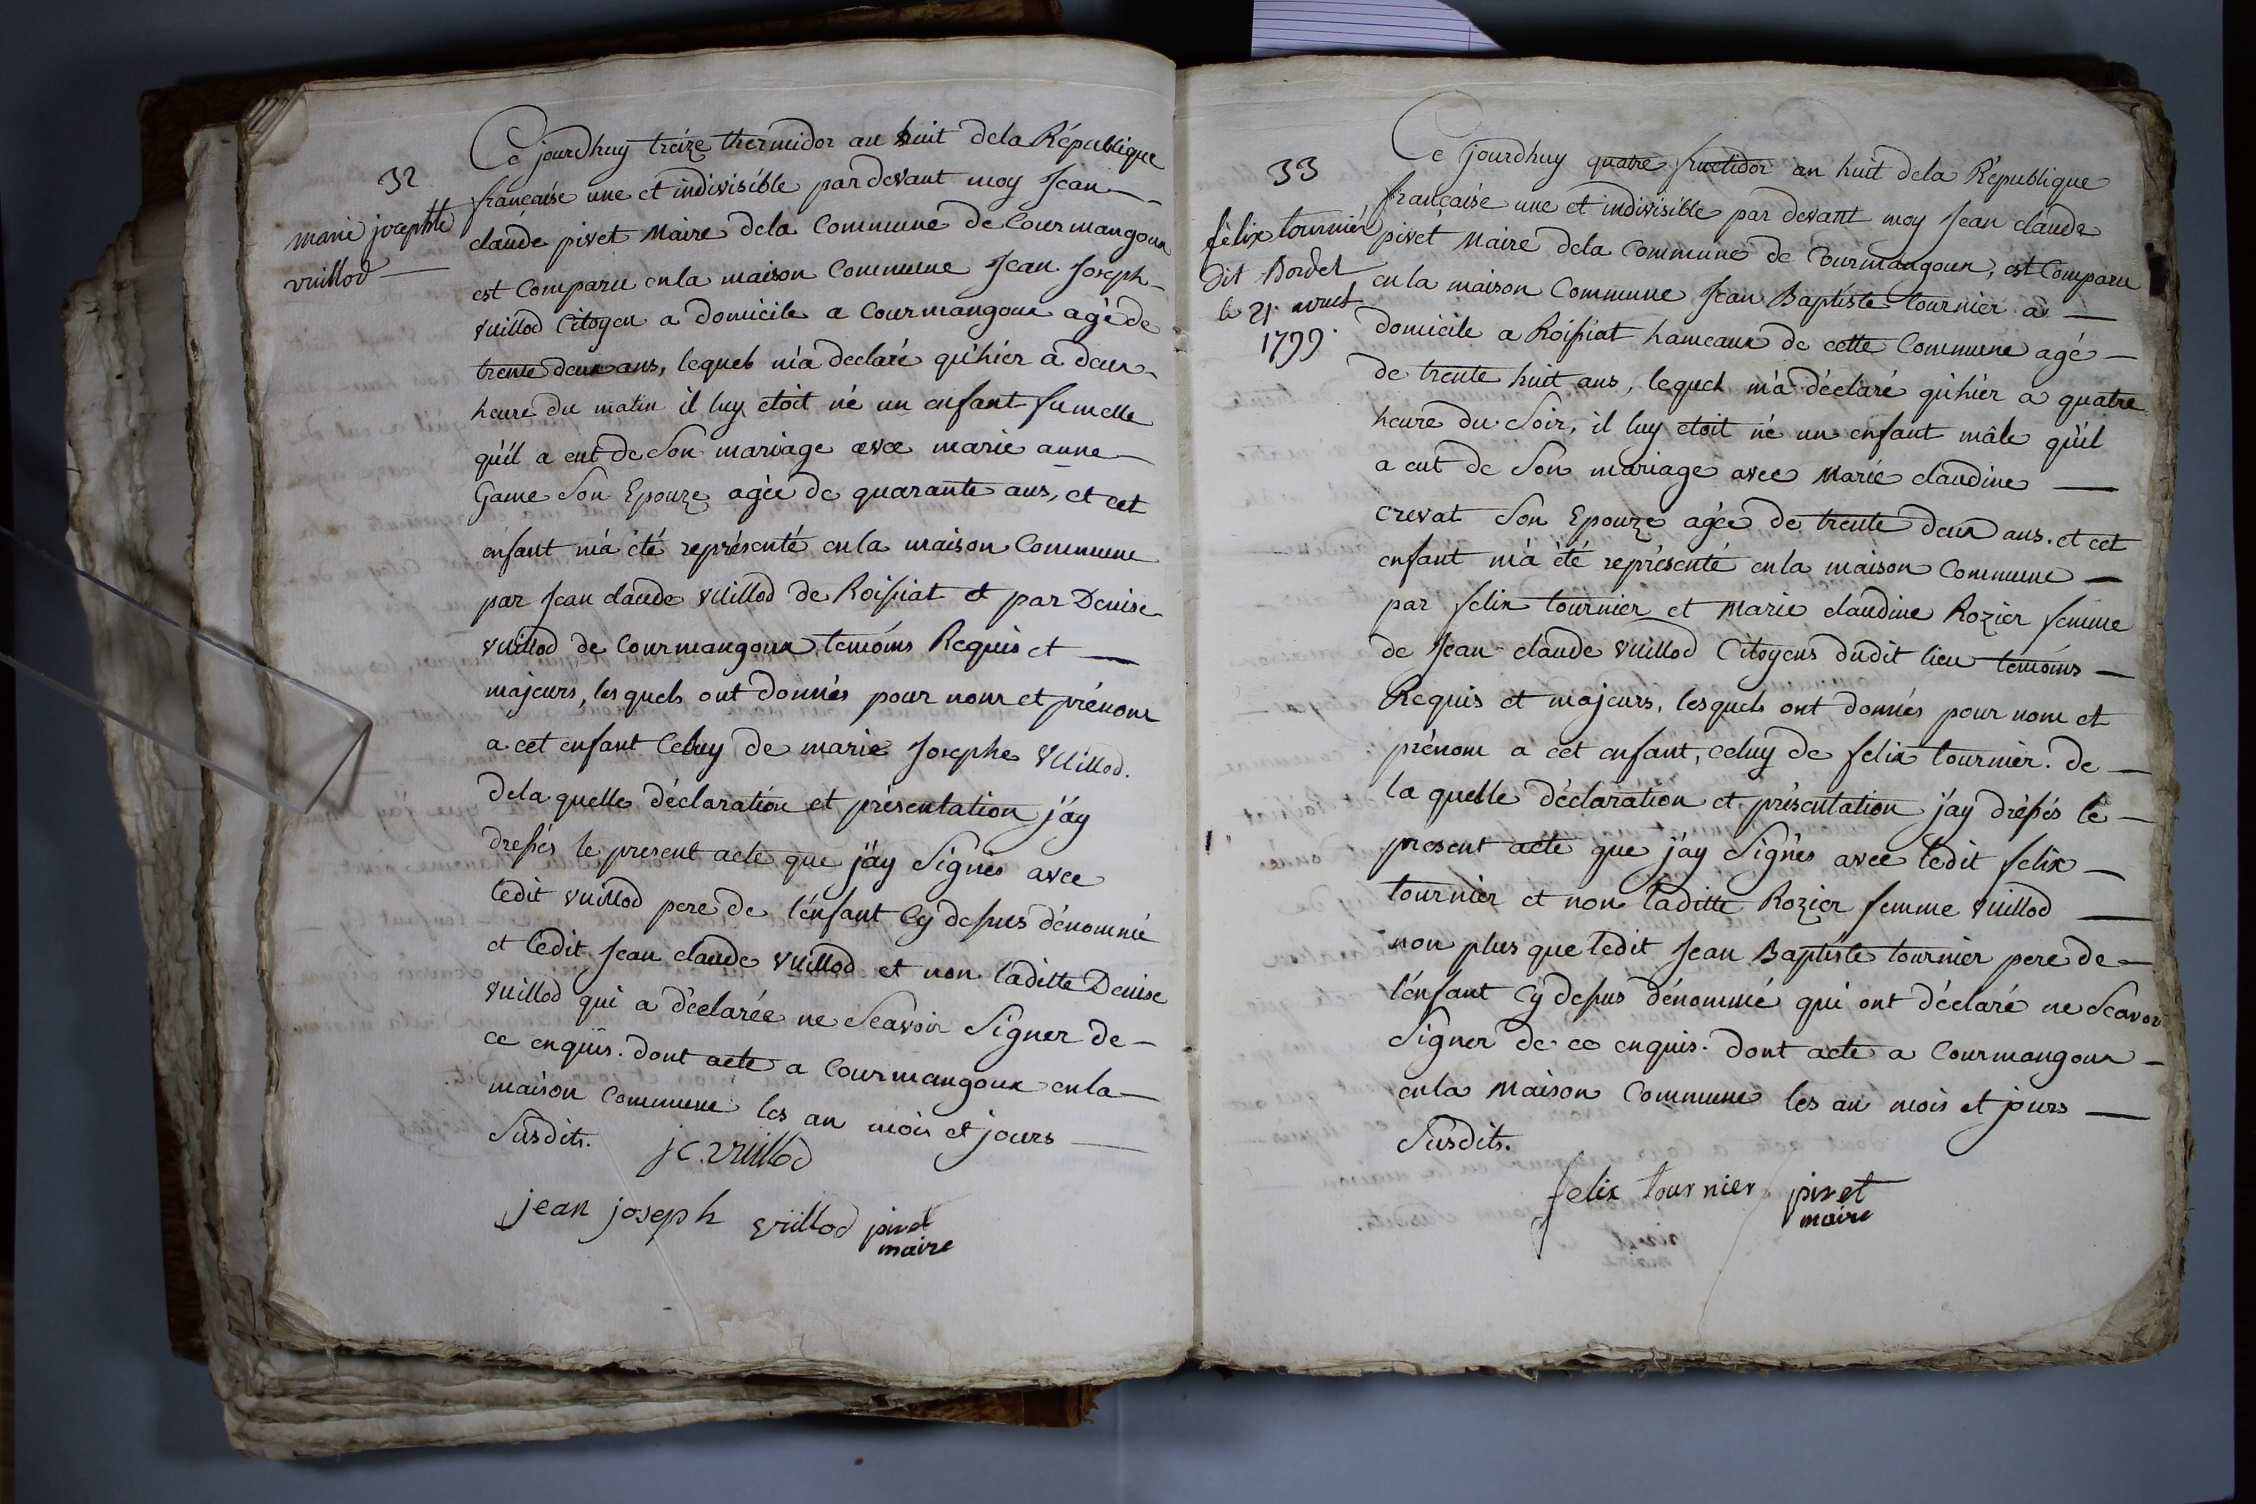 32
marie josephte
vuillod
Ce jourdhuy treize thermidor an huit dela République
française une et indivisible pardevant moy Jean
claude pivet Maire dela Commune de Courmangoux
est Comparu enla maison Commune Jean Joseph
vuillod Citoyen a domicile a Courmangoux agé de
trente deux ans, lequel m'a declaré qu'hier à deux
heure du matin il luy etoit né un enfant fumelle
qu'il a eut de Son mariage avec marie anne
Game Son Epouze agée de quarante ans, et cet
enfant m'a été représenté enla maison Commune
par Jean claude vuillod de Roissiat et par Denise
vuillod de Courmangoux, temoins Requis et
majeurs, lesquels ont donnés pour nom et prénom
a cet enfant Celuy de marie Josephe vuillod.
dela quelle déclaration et présentation j'ay
dressés le present acte que j'ay Signés avec
ledit vuillod pere de l'enfant Cy dessus dénommé
et ledit Jean claude vuillod et non laditte Denise
vuillod qui a déclarée ne Scavoir Signer de
ce enquis. dont acte a Courmangoux enla
maison Commune les an mois et jours
Susdits.
jc. vuillod
jean joseph vuillod pivet
maire
33
félix tournier
dit Bordet
le 21 aout
1799.
Ce jourdhuy quatre fructidor an huit dela République
française une et indivisible par devant moy Jean claude
pivet Maire dela Commune de Courmangoux, est Comparu
enla maison Commune Jean Baptiste tournier à
domicile a Roissiat hameaux de cette Commune agé
de trente huit ans, lequel m'a déclaré qu'hier a quatre
heure du Soir, il luy etoit né un enfant mâle qu'il
a eut de Son mariage avec Marie claudine
crevat Son Epouze agée de trente deux ans. et cet
enfant m'a été représenté enla maison Commune
par felix tournier et Marie claudine Rozier femme
de Jean claude vuillod Citoyens dudit lieu temoins
Requis et majeurs, lesquels ont donnés pour nom et
prénom a cet enfant, celuy de felix tournier. de
la quelle déclaration et présentation j'ay dréssés le
present acte que j'ay Signés avec ledit felix
tournier et non laditte Rozier femme vuillod
non plus que ledit Jean Baptiste tournier pere de
l'enfant Cy dessus dénommé qui ont déclaré ne Scavoir
Signer de ce enquis. dont acte a Courmangoux
enla Maison Commune les an mois et jours
Susdits.
felix tournier pivet
maire